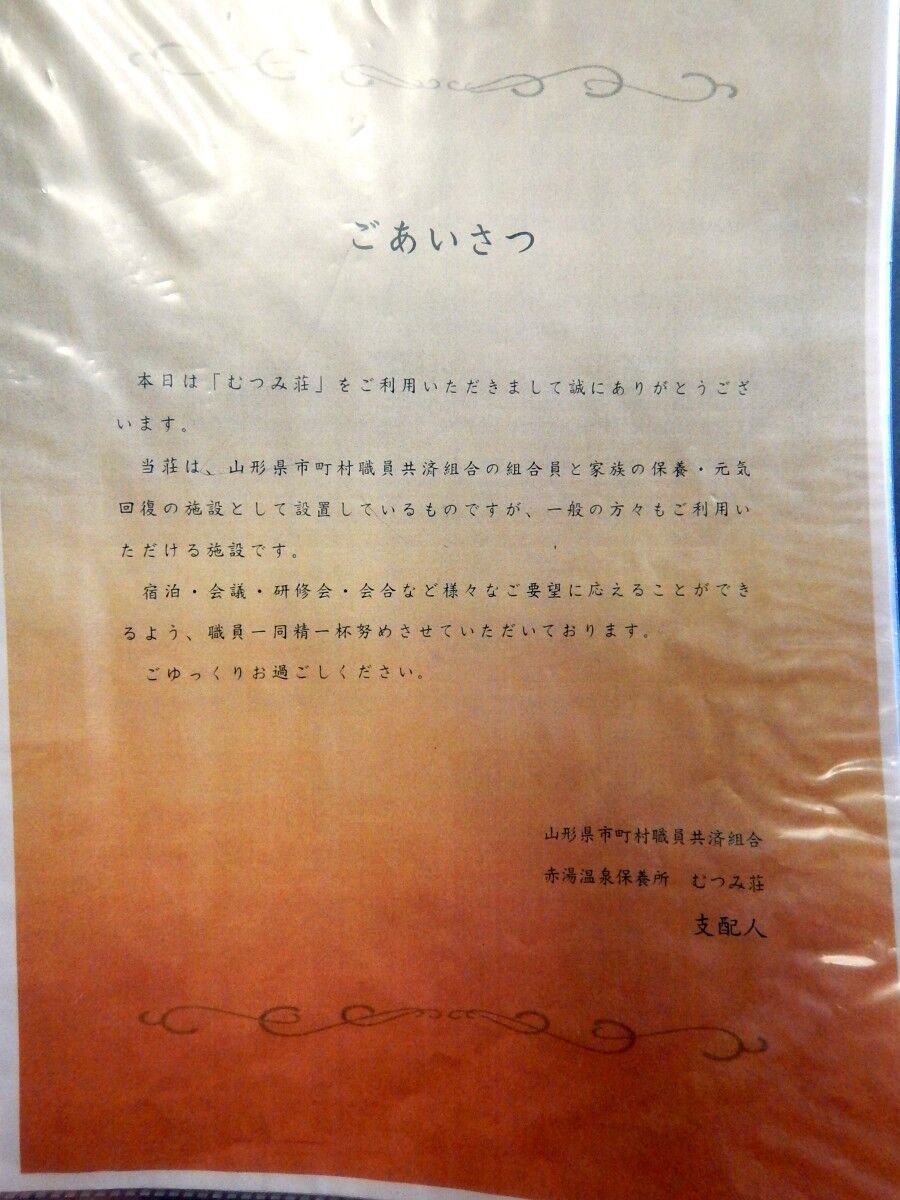 ごあいさつ
本日は「むつみ荘」をご利用いただきまして誠にありがとうござ
います。
当荘は、山形県市町村職員共済組合の組合員と家族の保養・元気
回復の施設として設置しているものですが、一般の方々もご利用い
ただける施設です。
宿泊・会議・研修会・会合など様々なご要望に応えることができ
るよう、職員一同精一杯努めさせていただいております。
ごゆっくりお過ごしください。
山形県市町村職員共済組合
赤湯温泉保養所　むつみ荘
支配人